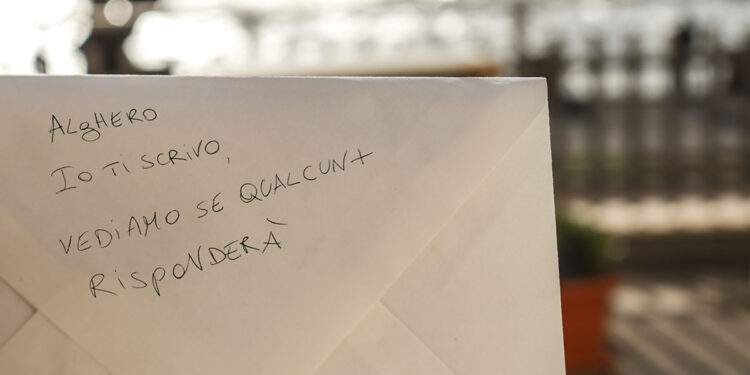 ALgHERO
IO TI SCRIVO,
VEDIAMO SE QUALCUN+
RISPONDERÀ